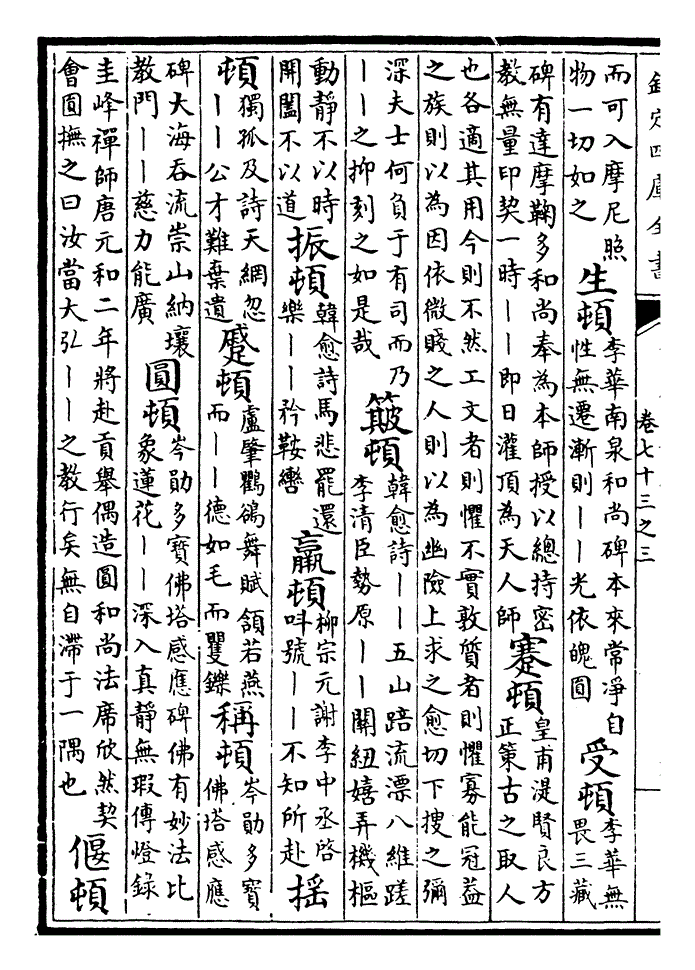 欽定四庫全書
卷七十三之三
而可入摩尼照物一切如之 生頓 李華南泉和尚碑本來常淨自性無遷漸則丨丨光依魄圓 受頓 李華無畏三藏
碑有達摩鞠多和尚奉為本師授以總持密教無量印契一時丨丨即日灌頂為天人師 蹇頓 皇甫湜賢良方正策古之取人
也各適其用今則不然工文者則懼不實敦質者則懼寡能冠葢之族則以為因依微賤之人則以為幽險上求之愈切下搜之彌
深夫士何負于有司而乃丨丨之抑刻之如是哉 簸頓 韓愈詩丨丨五山踣流漂八維蹉李清臣勢原丨丨關紐嬉弄機樞
動静不以時開闔不以道 振頓 韓愈詩馬悲罷還樂丨丨矜鞍轡 羸頓 柳宗元謝李中丞啓呌號丨丨不知所赴 揺
頓 獨孤及詩天網忽丨丨公才難棄遺 蹙頓 盧肇鸜鵒舞賦頷若燕而丨丨德如毛而矍鑠 稱頓 岑勛多寶佛塔感應
碑大海吞流崇山納壤教門丨丨慈力能廣 圓頓 岑勛多寶佛塔感應碑佛有妙法比象蓮花丨丨深入真静無瑕傳燈錄
圭峰禪師唐元和二年將赴貢舉偶造圓和尚法席欣然契會圓撫之曰汝當大弘丨丨之教行矣無自滯于一隅也 偃頓